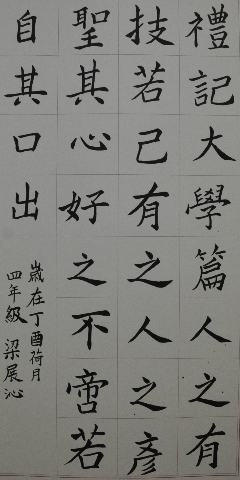 禮記大學篇人之有
技若己有之人之彥
聖其心好之不啻若
自其口出
歲在丁酉荷月
四年級 梁展沁